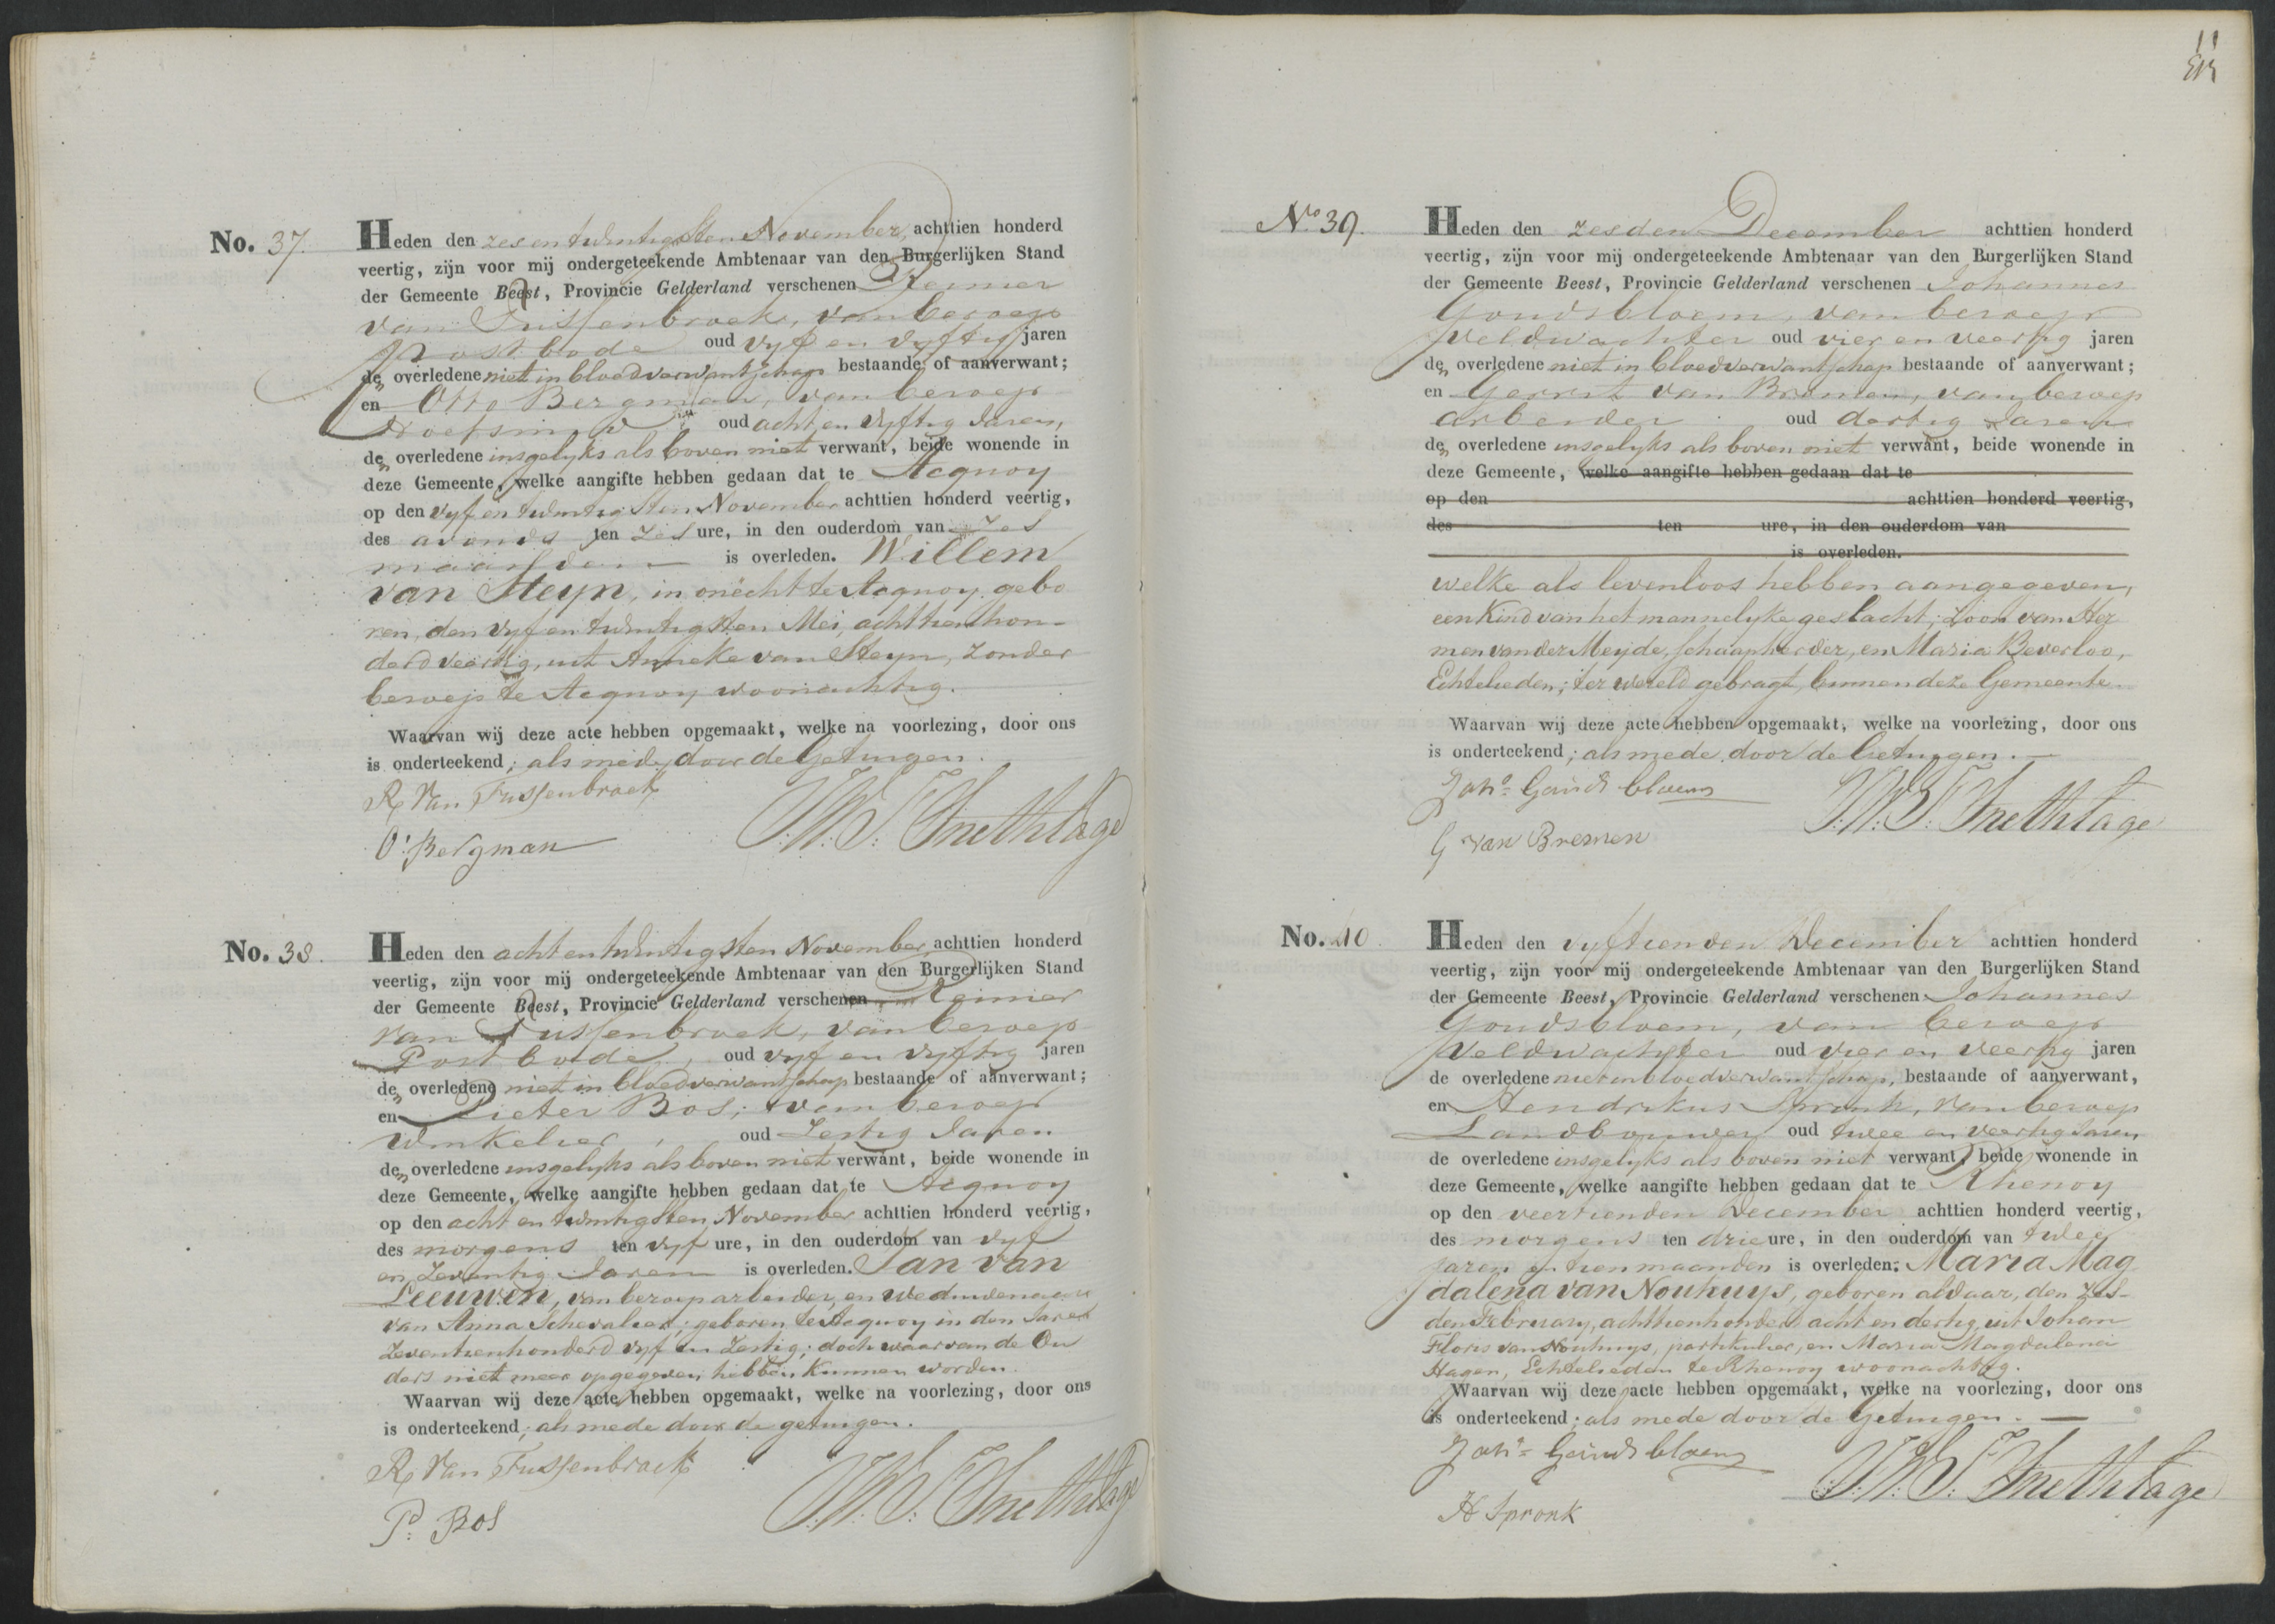 No. 37.
Heden den zes en twintigsten November, achttien honderd
veertig, zijn voor mij ondergeteekende Ambtenaar van den Burgerlijken Stand
der Gemeente Beest, Provincie Gelderland verschenen Reinier
van Tussenbroek, van beroep
Postbode oud vyf en vyftig jaren
de overledene niet in bloedverwantschap bestaande of aanverwant;
en Otto Bergman, van beroep
oud acht en vyftig Jaren,
de overledene insgelyks als boven niet verwant, beide wonende in
deze Gemeente, welke aangifte hebben gedaan dat te Acquoy
op den vyf en twintigsten November achttien honderd veertig,
des avonds ten zes ure, in den ouderdom van zes
maanden is overleden. Willem
van Steyn, in onècht te Acquoy gebo
ren, den vyf en twintigsten Mei, achttienhon-
derd veertig, uit Anneke van Steyn, zonder
beroep te Acquoy woonachtig.
Waarvan wij deze acte hebben opgemaakt, welke na voorlezing, door ons
is onderteekend; als mede door de Getuigen.
R. Van Tussenbroek
O: Bergman
No. 38.
Heden den acht en twintigsten November, achttien honderd
veertig, zijn voor mij ondergeteekende Ambtenaar van den Burgerlijken Stand
der Gemeente Beest, Provincie Gelderland verschenen Reinier
van Tussenbroek, van beroep
Postbode, oud vyf en vyftig jaren
de overledene niet in bloedverwantschap bestaande of aanverwant;
en Pieter Bos, van beroep
Winkelier, oud Zestig Jaren
de overledene insgelyks als boven niet verwant, beide wonende in
deze Gemeente, welke aangifte hebben gedaan dat te Acquoy
op den acht en twintigsten November achttien honderd veertig,
des morgens ten vyf ure, in den ouderdom van vyf
en Zeventig Jaren is overleden. Jan van
Leeuwen, van beroep arbeider, en Weduwenaar
van Anna Schevalier; geboren te Acquoy in den Jare
Zeventienhonderd vyf en Zestig; doch waarvan de Ou
ders niet meer opgegeven hebben kunnen worden.
Waarvan wij deze acte hebben opgemaakt, welke na voorlezing, door ons
is onderteekend; als mede door de getuigen.
R. Van Tussenbroek
P. Bos
11
No. 39.
Heden den zesden December achttien honderd
veertig, zijn voor mij ondergeteekende Ambtenaar van den Burgerlijken Stand
der Gemeente Beest, Provincie Gelderland verschenen Johannes
Goudsbloem, van beroep
Veldwachter oud vier en veertig jaren
de overledene niet in bloedverwantschap bestaande of aanverwant;
en Gerrit van Bremen, van beroep
arbeider oud dertig Jaren
de overledene insgelyks als boven niet verwant, beide wonende in
deze Gemeente, welke aangifte hebben gedaan dat te
op den achttien honderd veertig,
des ten ure, in den ouderdom van
is overleden.
welke als levenloos hebben aangegeven,
een Kind van het mannelyke geslacht, zoon van Her
men van der Meyde, schaapherder, en Maria Beverloo,
Echtelieden; ter wereld gebragt binnen deze Gemeente
Waarvan wij deze acte hebben opgemaakt, welke na voorlezing, door ons
is onderteekend; als mede door de Getuigen.
Johs Goudsbloem
G van Bremen
No. 40.
Heden den vyftienden December achttien honderd
veertig, zijn voor mij ondergeteekende Ambtenaar van den Burgerlijken Stand
der Gemeente Beest, Provincie Gelderland verschenen Johannes
Goudsbloem, van beroep
Veldwachter oud vier en veertig jaren
de overledene niet in bloedverwantschap, bestaande of aanverwant,
en Hendrikus Spronk, van beroep
Landbouwer oud twee en veertig Jaren
de overledene insgelyks als boven niet verwant, beide wonende in
deze Gemeente, welke aangifte hebben gedaan dat te Rhenoy
op den veertienden December achttien honderd veertig,
des morgens ten drie ure, in den ouderdom van twee
jaren en tien maanden is overleden: Maria Mag
dalena van Nouhuys, geboren aldaar, den zes-
den February, achttienhonderd acht en dertig, uit Johan
Floris van Nouhuys, partikulier, en Maria Magdalena
Hagen, Echtelieden te Rhenoy woonachtig.
Waarvan wij deze acte hebben opgemaakt, welke na voorlezing, door ons
is onderteekend; als mede door de Getuigen.
Johs Goudsbloem
H Spronk